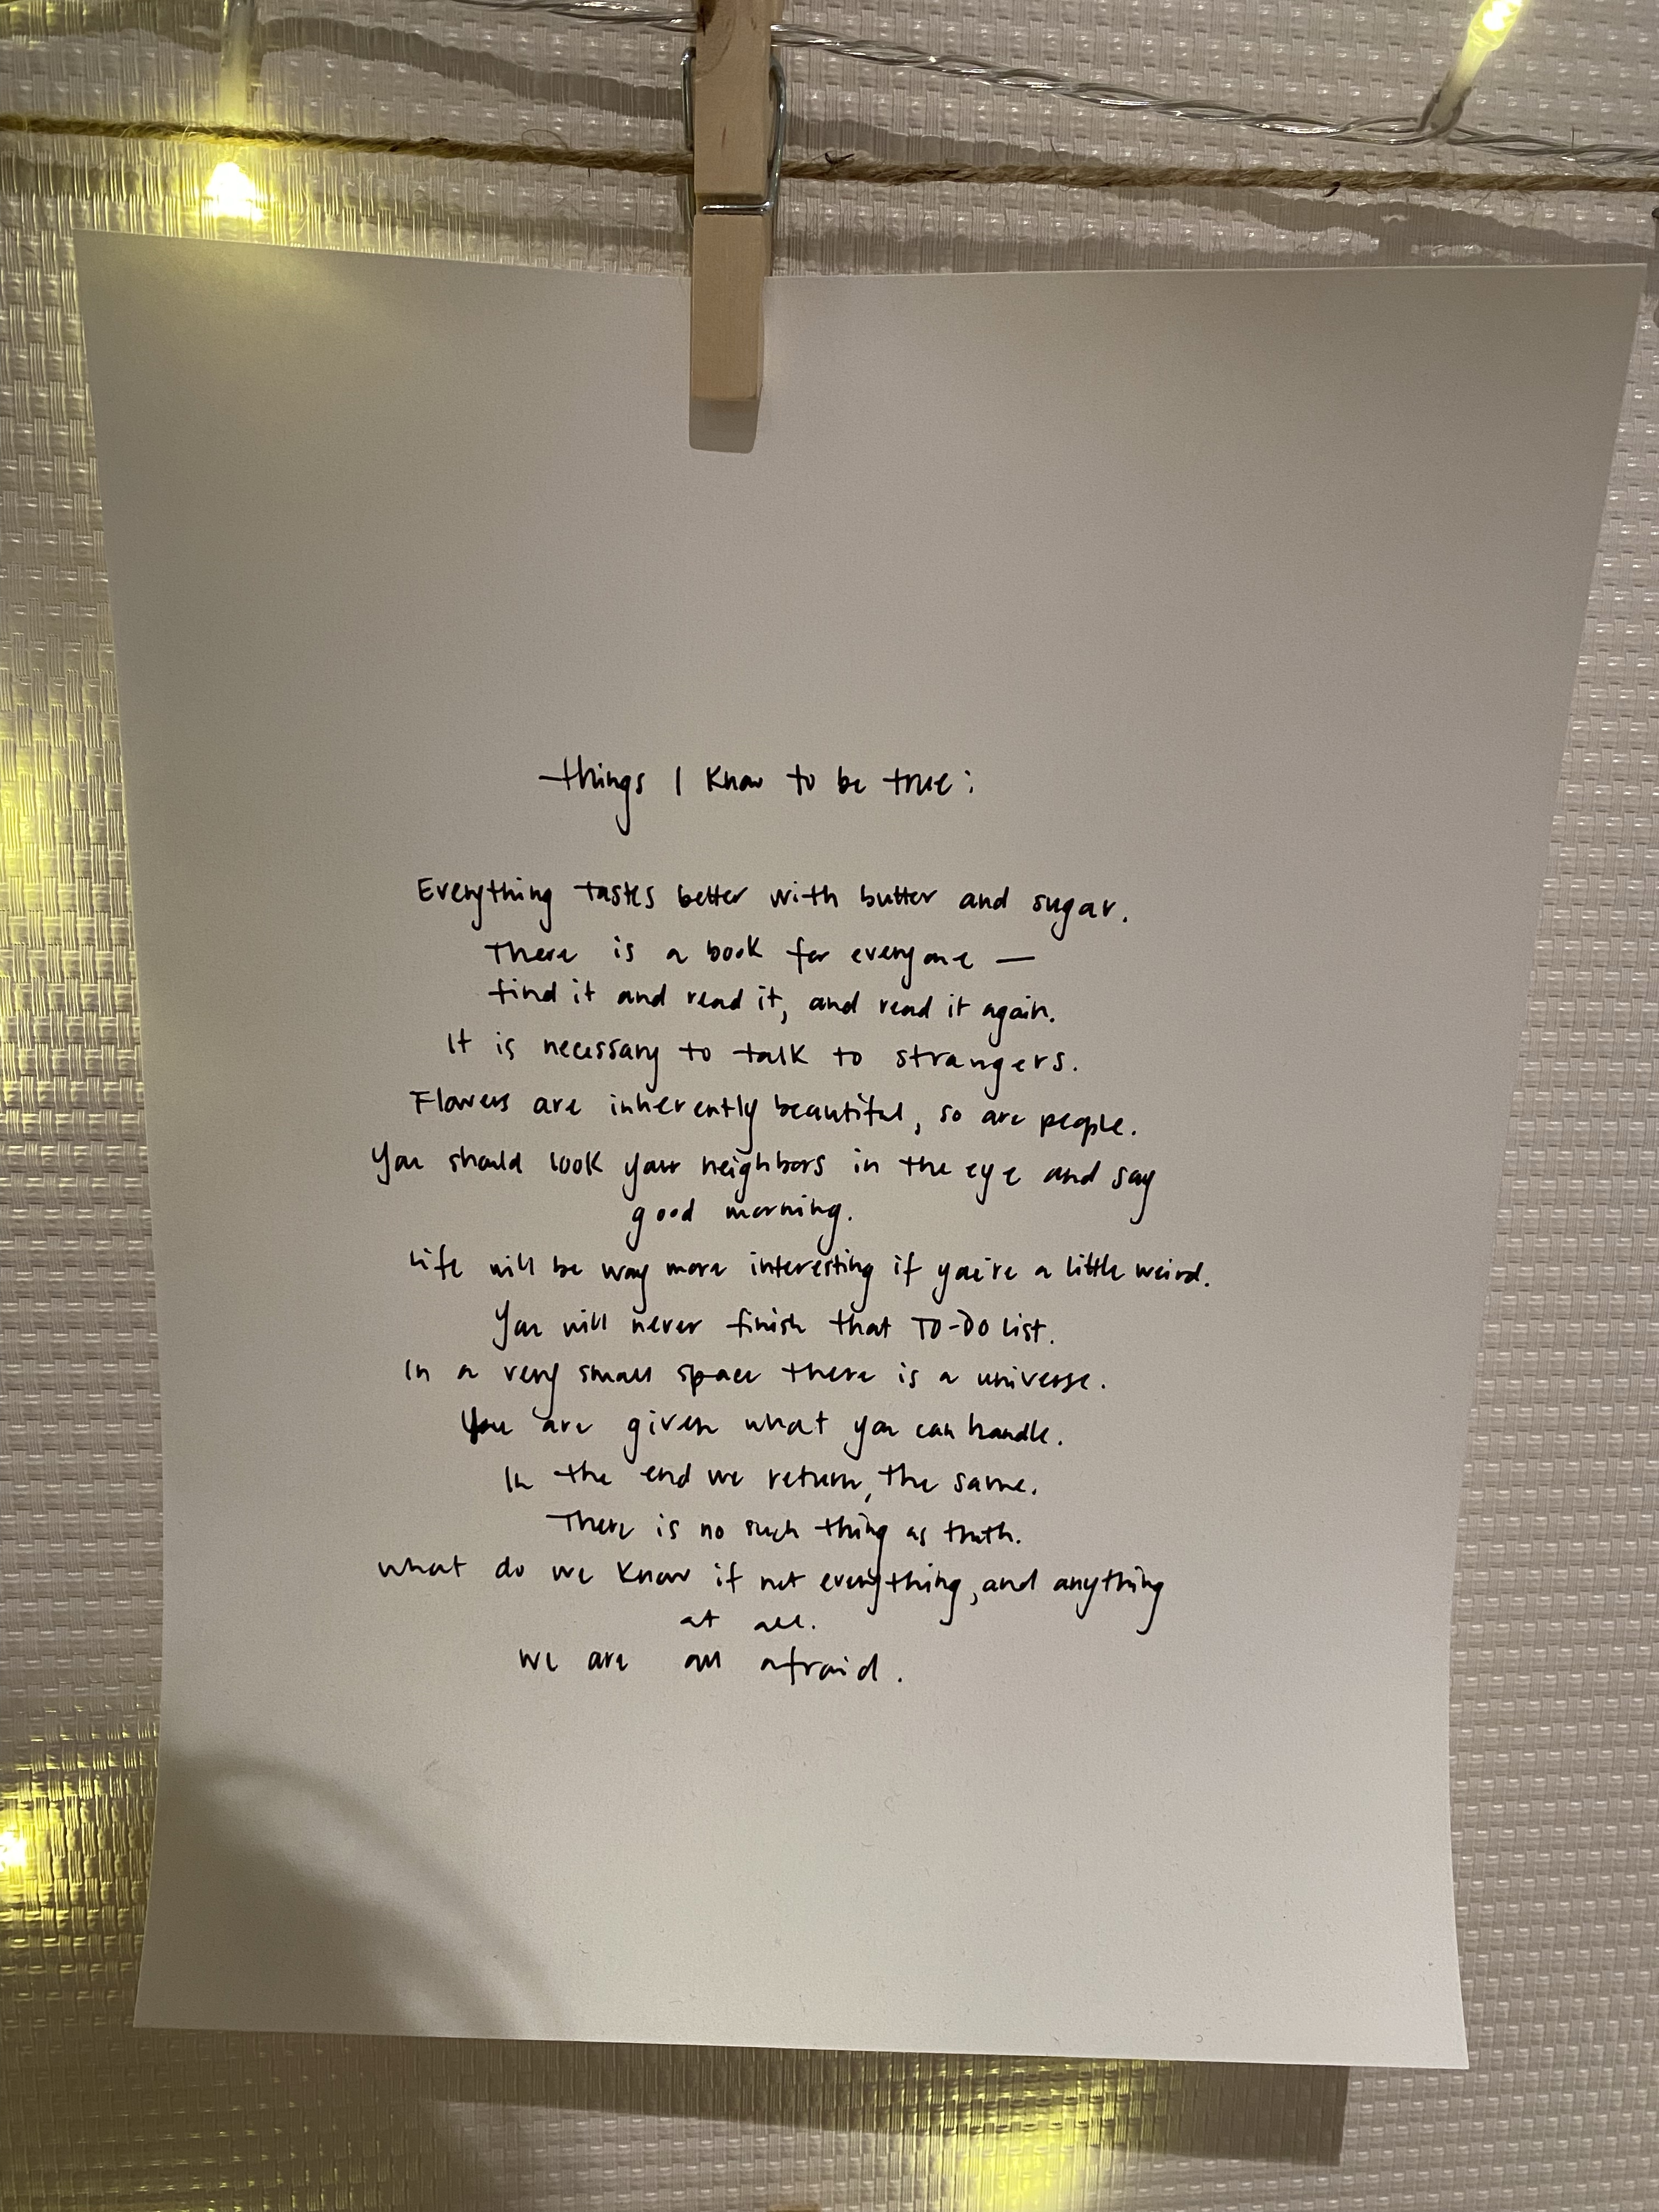 things I know to be true:
Everything tastes better with butter and sugar.
There is a book for everyone —
find it and read it, and read it again.
It is necessary to talk to strangers.
Flowers are inherently beautiful, so are people.
You should look your neighbors in the eye and say
good morning.
Life will be way more interesting if you're a little weird.
You will never finish that TO-DO list.
In a very small space there is a universe.
You are given what you can handle.
In the end we return, the same.
There is no such thing as truth.
what do we know if not everything, and anything
at all.
we are all afraid.